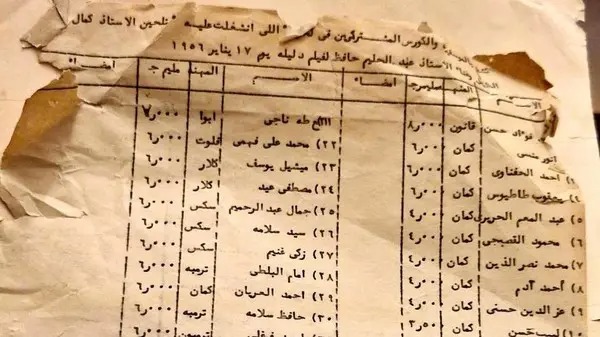 والكورس المشتركين فى اللى انشغلت عليه " تلحين الاستاذ كمال
الاستاذ عبد الحليم حافظ لفيلم دليله يوم ١٧ يناير ١٩٥٦
الاسم المهنه مليم ج امضاء الاسم المهنه مليم ج امضاء
فؤاد حسن قانون ٠٠٠ر٨ طه ناجى ابوا ٠٠٠ر٧
أنور منسى كمان ٠٠٠ر٦ ٢٢) محمد على فهمى فلوت ٠٠٠ر٦
احمد الحفناوى كمان ٠٠٠ر٦ ٢٣) ميشيل يوسف كلار ٠٠٠ر٦
يعقوب طاطيوس كمان ٠٠٠ر٦ ٢٤) مصطفى عيد كلار ٠٠٠ر٦
٥) عبد المنعم الحريرى كمان ٠٠٠ر٤ ٢٥) جمال عبد الرحيم سكس ٠٠٠ر٦
٦) محمود القصبجى كمان ٠٠٠ر٤ ٢٦) سيد سلامه سكس ٠٠٠ر٦
٧) محمد نصر الدين كمان ٠٠٠ر٤ ٢٧) زكى غنيم سكس ٠٠٠ر٦
٨) أحمد آدم كمان ٠٠٠ر٤ ٢٨) امام البلطى ترمبه ٠٠٠ر٦
٩) عز الدين حسنى كمان ٠٠٠ر٤ ٢٩) احمد العريان كمان ٠٠٠ر٦
١٠) لبيب حسن كمان ٥٠٠ر٣ ٣٠) حافظ سلامه ترمبه ٠٠٠ر٦